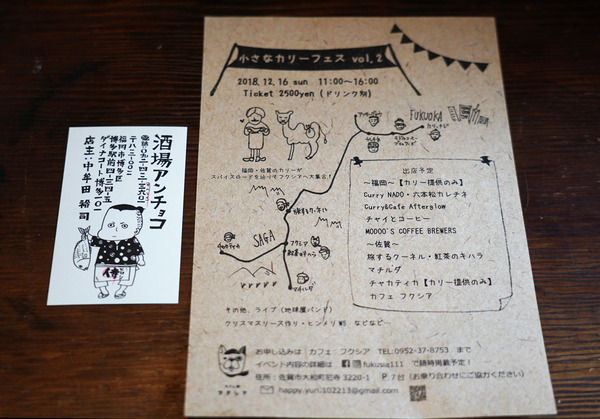 酒場アンチョコ
福岡市博多区
博多駅前四-三四-五
ダイナコート博多一〇一
店主:中牟田 裕司
侍
小さなカリーフェス vol.2
2018.12.16 sun 11:00~16:00
Ticket 2500yen (ドリンク別)
福岡・佐賀のカリーが
スパイスロードを辿ってフクシアへ大集合!
FUKUOKA
SAGA
旅するクーネル
フクシア
マチルダ
出店予定
~福岡~【カリー提供のみ】
Curry NADO・六本松カレチネ
Curry&Café Afterglow
チャイとコーヒー
MODOO'S COFFEE BREWERS
~佐賀~
旅するクーネル・紅茶のキハラ
マチルダ
チャカティカ【カリー提供のみ】
カフェ フクシア
その他、ライブ(地球屋バンド)
クリスマスリース作り・ヒンメリWS などなど…
お申し込みは カフェ:フクシア TEL:0952-37-8753 まで
イベント内容の詳細は fukusia111 で随時掲載予定!
住所:佐賀市大和町尼寺 3220-1 P 7台 (お乗り合わせにご協力ください)
happy.yuri.102213@gmail.com
フクシア